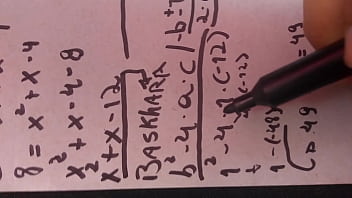 8 = x² + x - 4
x² + x - 4 - 8
x² + x - 12
BASKHARA
b² - 4.a.c | -b±
1² - 4.1.(-12)
(-12)
1 - (-48)
49
= 49